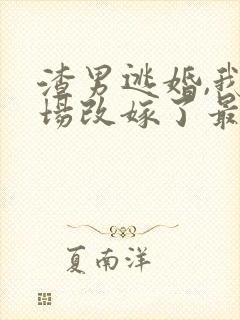 渣男逃婚,我
场改嫁了最
夏南洋